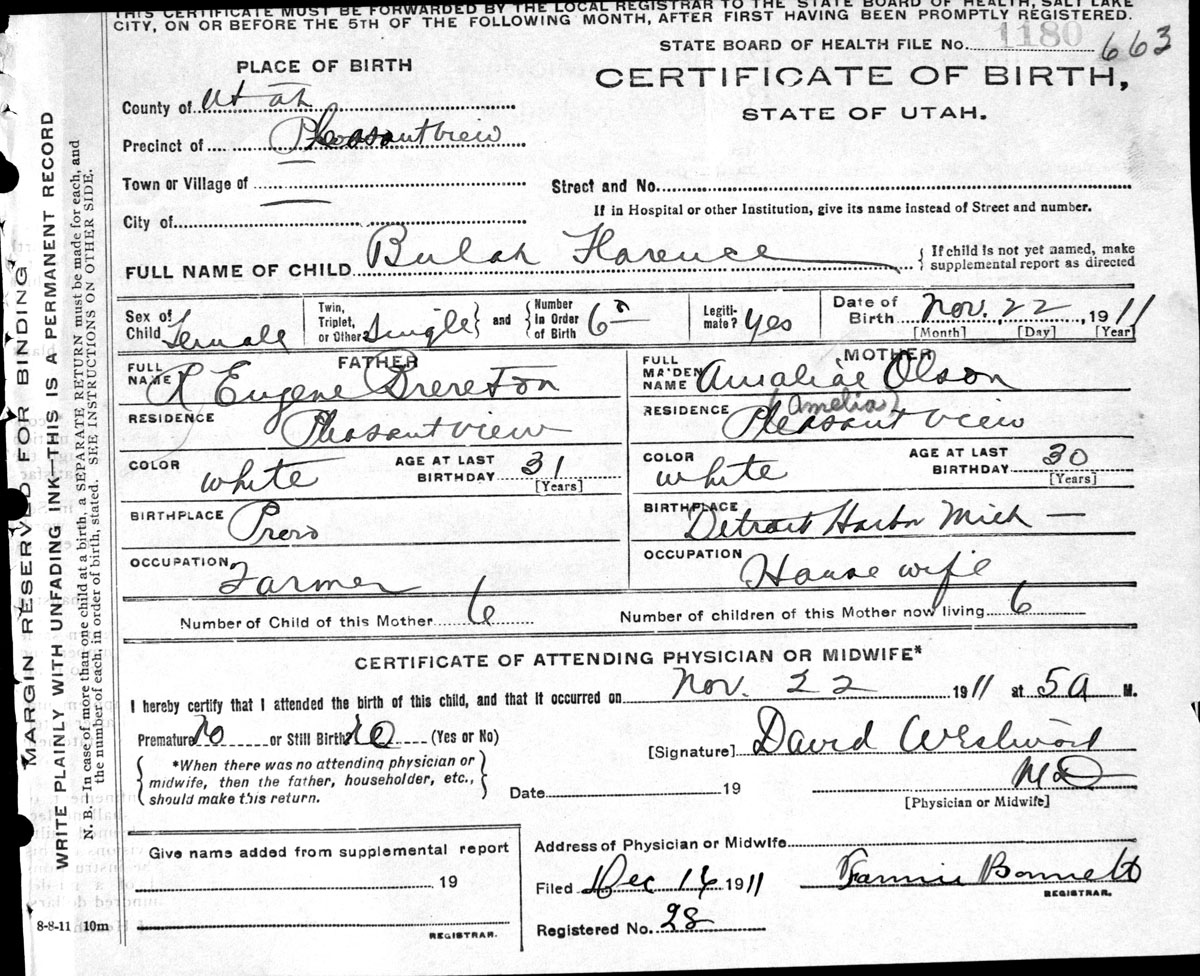 THIS CERTIFICATE MUST BE FORWARDED BY THE LOCAL REGISTRAR TO THE STATE BOARD OF HEALTH, SALT LAKE
CITY, ON OR BEFORE THE 5TH OF THE FOLLOWING MONTH, AFTER FIRST HAVING BEEN PROMPTLY REGISTERED.
STATE BOARD OF HEALTH FILE No. 1180 663
PLACE OF BIRTH
CERTIFICATE OF BIRTH,
STATE OF UTAH.
County of Utah
Precinct of Pleasantview
Town or Village of
Street and No.
City of
If in Hospital or other Institution, give its name instead of Street and number.
FULL NAME OF CHILD Bulah Florence { If child is not yet named, make supplemental report as directed
Sex of Child Female
Twin, Triplet, or Other Single } and { Number in Order of Birth 6th
Legiti-mate? Yes
Date of Birth Nov. 22, 1911
[Month] [Day] [Year]
FATHER
FULL NAME R Eugene Brereton
MOTHER
FULL MA'DEN NAME Amaliae Olson
(Amelia)
RESIDENCE Pleasant view
RESIDENCE Pleasant View
COLOR white AGE AT LAST BIRTHDAY 31 [Years]
COLOR white AGE AT LAST BIRTHDAY 30 [Years]
BIRTHPLACE Provo
BIRTHPLACE Detroit Harbor Mich —
OCCUPATION Farmer
OCCUPATION House wife
Number of Child of this Mother 6
Number of children of this Mother now living 6
CERTIFICATE OF ATTENDING PHYSICIAN OR MIDWIFE*
I hereby certify that I attended the birth of this child, and that it occurred on Nov. 22 1911 at 5 a M.
Premature No or Still Birth? No (Yes or No)
[Signature] David Westwood
M D
[Physician or Midwife]
{ *When there was no attending physician or
midwife, then the father, householder, etc.,
should make this return. }
Date 19
Give name added from supplemental report
19
REGISTRAR.
Address of Physician or Midwife
Filed Dec 14 1911
Fannie Bonnett
REGISTRAR.
Registered No. 28
8-8-11 10m
MARGIN RESERVED FOR BINDING
WRITE PLAINLY WITH UNFADING INK—THIS IS A PERMANENT RECORD
N. B.—In case of more than one child at a birth, a SEPARATE RETURN must be made for each, and
the number of each, in order of birth, stated. SEE INSTRUCTIONS ON OTHER SIDE.